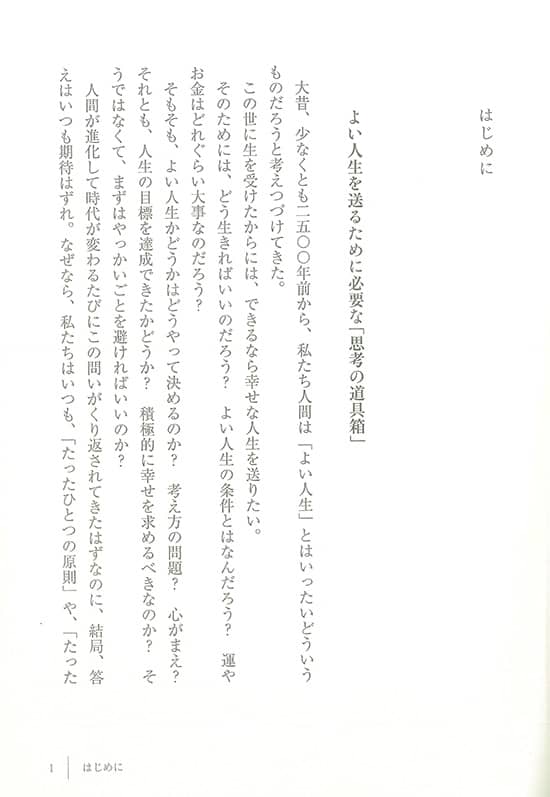 はじめに
よい人生を送るために必要な「思考の道具箱」
大昔、少なくとも二五〇〇年前から、私たち人間は「よい人生」とはいったいどういう
ものだろうと考えつづけてきた。
この世に生を受けたからには、できるなら幸せな人生を送りたい。
そのためには、どう生きればいいのだろう？　よい人生の条件とはなんだろう？　運や
お金はどれぐらい大事なのだろう？
そもそも、よい人生かどうかはどうやって決めるのか？　考え方の問題？　心がまえ？
それとも、人生の目標を達成できたかどうか？　積極的に幸せを求めるべきなのか？　そ
うではなくて、まずはやっかいごとを避ければいいのか？
人間が進化して時代が変わるたびにこの問いがくり返されてきたはずなのに、結局、答
えはいつも期待はずれ。なぜなら、私たちはいつも、「たったひとつの原則」や、「たった
1 はじめに